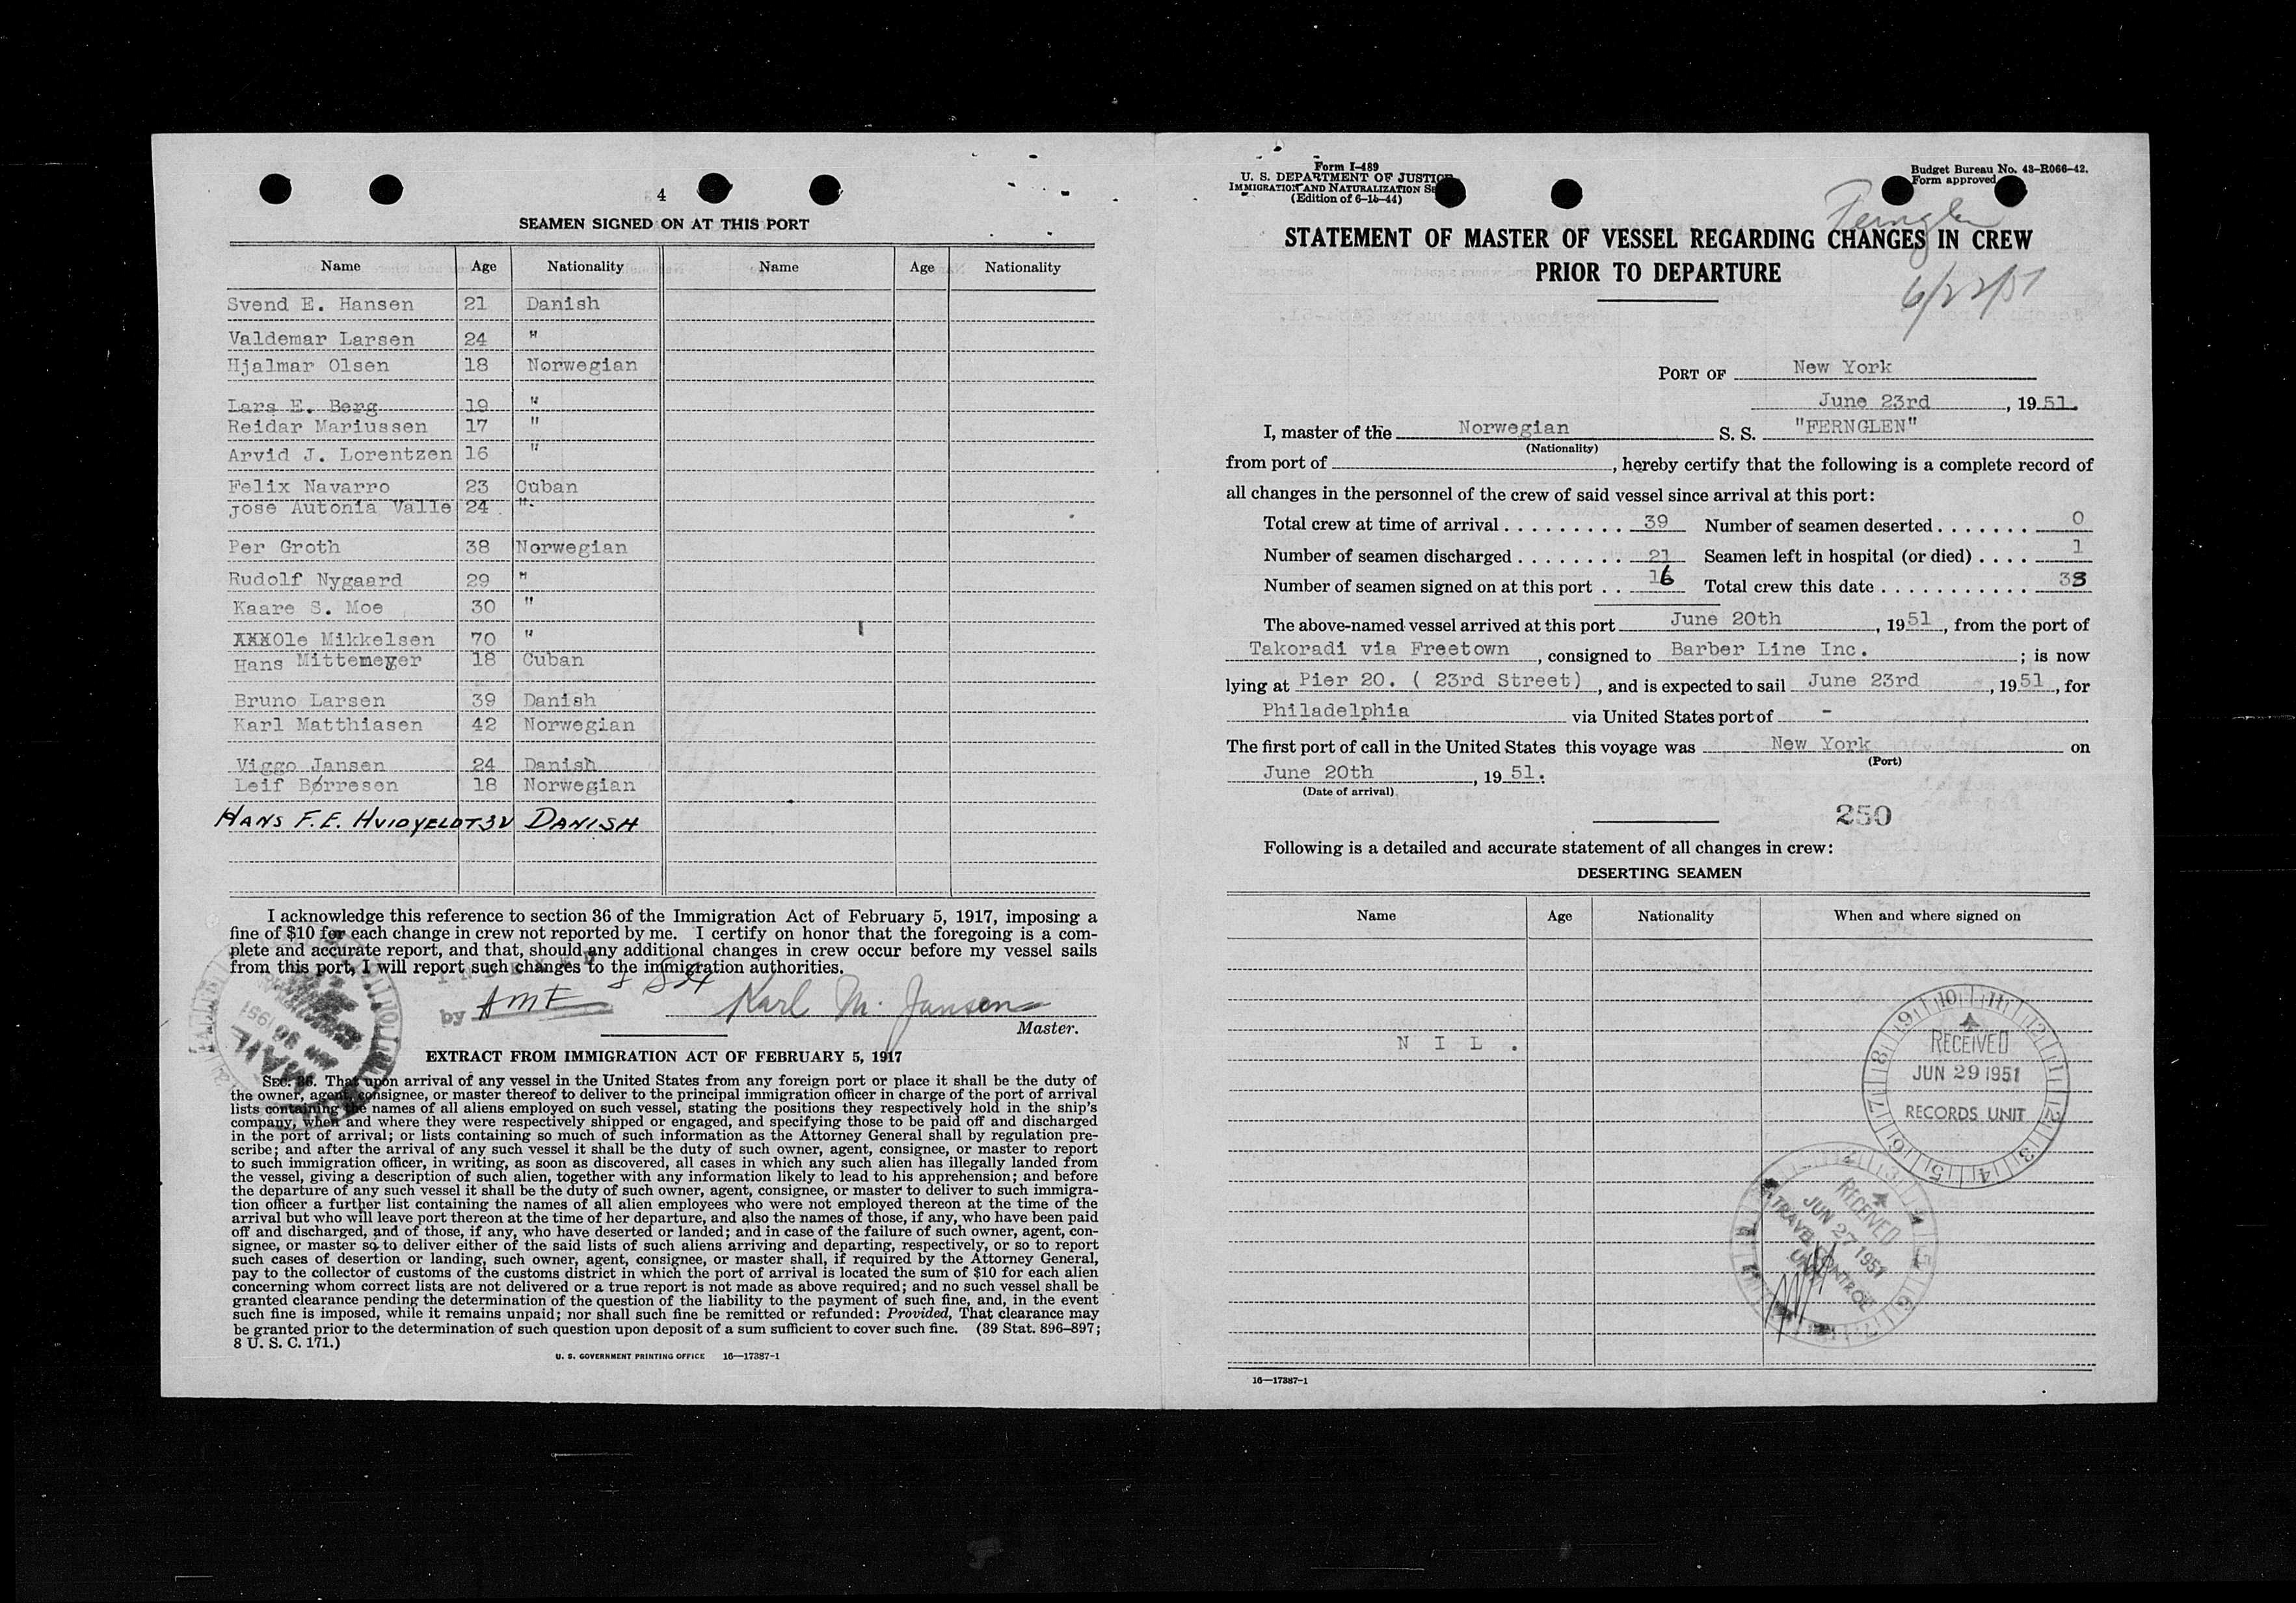 4
SEAMEN SIGNED ON AT THIS PORT
Name Age Nationality Name Age Nationality
Svend E. Hansen 21 Danish
Valdemar Larsen 24 "
Hjalmar Olsen 18 Norwegian
Lars E. Berg 19 "
Reidar Mariussen 17 "
Arvid J. Lorentzen 16 "
Felix Navarro 23 Cuban
Jose Autonia Valle 24 "
Per Groth 38 Norwegian
Rudolf Nygaard 29 "
Kaare S. Moe 30 "
Ole Mikkelsen 70 "
Hans Mittemeyer 18 Cuban
Bruno Larsen 39 Danish
Karl Matthiasen 42 Norwegian
Viggo Jansen 24 Danish
Leif Børresen 18 Norwegian
HANS F.E. DANISH
I acknowledge this reference to section 36 of the Immigration Act of February 5, 1917, imposing a
fine of $10 for each change in crew not reported by me. I certify on honor that the foregoing is a com-
plete and accurate report, and that, should any additional changes in crew occur before my vessel sails
from this port, I will report such changes to the immigration authorities.
by AMF Karl M. Jansen
Master.
EXTRACT FROM IMMIGRATION ACT OF FEBRUARY 5, 1917
SEC. 36. That upon arrival of any vessel in the United States from any foreign port or place it shall be the duty of
the owner, agent, consignee, or master thereof to deliver to the principal immigration officer in charge of the port of arrival
lists containing the names of all aliens employed on such vessel, stating the positions they respectively hold in the ship's
company, when and where they were respectively shipped or engaged, and specifying those to be paid off and discharged
in the port of arrival; or lists containing so much of such information as the Attorney General shall by regulation pre-
scribe; and after the arrival of any such vessel it shall be the duty of such owner, agent, consignee, or master to report
to such immigration officer, in writing, as soon as discovered, all cases in which any such alien has illegally landed from
the vessel, giving a description of such alien, together with any information likely to lead to his apprehension; and before
the departure of any such vessel it shall be the duty of such owner, agent, consignee, or master to deliver to such immigra-
tion officer a further list containing the names of all alien employees who were not employed thereon at the time of the
arrival but who will leave port thereon at the time of her departure, and also the names of those, if any, who have been paid
off and discharged, and of those, if any, who have deserted or landed; and in case of the failure of such owner, agent, con-
signee, or master so to deliver either of the said lists of such aliens arriving and departing, respectively, or so to report
such cases of desertion or landing, such owner, agent, consignee, or master shall, if required by the Attorney General,
pay to the collector of customs of the customs district in which the port of arrival is located the sum of $10 for each alien
concerning whom correct lists are not delivered or a true report is not made as above required; and no such vessel shall be
granted clearance pending the determination of the question of the liability to the payment of such fine, and, in the event
such fine is imposed, while it remains unpaid; nor shall such fine be remitted or refunded: Provided, That clearance may
be granted prior to the determination of such question upon deposit of a sum sufficient to cover such fine. (39 Stat. 896–897;
8 U. S. C. 171.)
U. S. GOVERNMENT PRINTING OFFICE 16—17387-1
Form I-489
U. S. DEPARTMENT OF JUSTICE
IMMIGRATION AND NATURALIZATION SE
(Edition of 6-15-44)
Budget Bureau No. 43-R066-42.
Form approved
Fernglen
STATEMENT OF MASTER OF VESSEL REGARDING CHANGES IN CREW
PRIOR TO DEPARTURE
6/22/51
PORT OF New York
June 23rd, 1951.
I, master of the Norwegian S. S. "FERNGLEN"
(Nationality)
from port of , hereby certify that the following is a complete record of
all changes in the personnel of the crew of said vessel since arrival at this port:
Total crew at time of arrival . . . . . . . . . 39 Number of seamen deserted . . . . . . . 0
Number of seamen discharged . . . . . . . . 21 Seamen left in hospital (or died) . . . . 1
Number of seamen signed on at this port . . 16 Total crew this date . . . . . . . . . . . 33
The above-named vessel arrived at this port June 20th, 1951, from the port of
Takoradi via Freetown, consigned to Barber Line Inc. ; is now
lying at Pier 20. ( 23rd Street), and is expected to sail June 23rd, 1951, for
Philadelphia via United States port of -
The first port of call in the United States this voyage was New York on
(Port)
June 20th, 1951.
(Date of arrival)
250
Following is a detailed and accurate statement of all changes in crew:
DESERTING SEAMEN
Name Age Nationality When and where signed on
N I L .
RECEIVED
JUN 29 1951
RECORDS UNIT
RECEIVED
JUN 27 1951
TRAVEL CONTROL
UNIT
16—17387-1